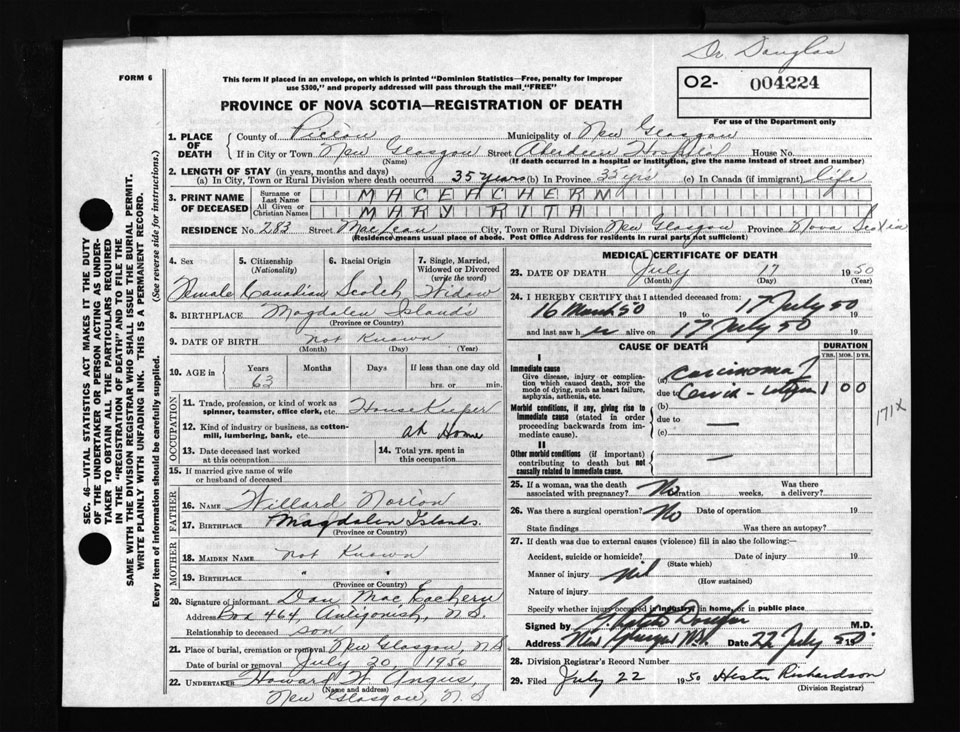 Dr. Douglas
FORM 6
This form if placed in an envelope, on which is printed "Dominion Statistics—Free, penalty for improper
use $300," and properly addressed will pass through the mail "FREE"
O2- 004224
PROVINCE OF NOVA SCOTIA—REGISTRATION OF DEATH
For use of the Department only
SEC. 46—VITAL STATISTICS ACT MAKES IT THE DUTY
OF THE UNDERTAKER OR PERSON ACTING AS UNDER-
TAKER TO OBTAIN ALL THE PARTICULARS REQUIRED
IN THE "REGISTRATION OF DEATH" AND TO FILE THE
SAME WITH THE DIVISION REGISTRAR WHO SHALL ISSUE THE BURIAL PERMIT.
WRITE PLAINLY WITH UNFADING INK. THIS IS A PERMANENT RECORD.
Every item of information should be carefully supplied. (See reverse side for instructions.)
1. PLACE OF DEATH County of Pictou Municipality of New Glasgow
If in City or Town New Glasgow Street Aberdeen Hospital House No.
(Name) (If death occurred in a hospital or institution, give the name instead of street and number)
2. LENGTH OF STAY (in years, months and days)
(a) In City, Town or Rural Division where death occurred 35 years (b) In Province 35 yrs (c) In Canada (if immigrant) life
3. PRINT NAME OF DECEASED Surname or Last Name MACEACHERN
All Given or Christian Names MARY RITA
RESIDENCE No. 283 Street MacLean City, Town or Rural Division New Glasgow Province Nova Scotia
(Residence means usual place of abode. Post Office Address for residents in rural parts not sufficient)
4. Sex 5. Citizenship (Nationality) 6. Racial Origin 7. Single, Married, Widowed or Divorced (write the word)
Female Canadian Scotch Widow
8. BIRTHPLACE Magdalen Islands
(Province or Country)
9. DATE OF BIRTH not Known
(Month) (Day) (Year)
10. AGE in Years Months Days If less than one day old
63 hrs. or min.
OCCUPATION
11. Trade, profession, or kind of work as spinner, teamster, office clerk, etc. House Keeper
12. Kind of industry or business, as cotton-mill, lumbering, bank, etc. at Home
13. Date deceased last worked at this occupation 14. Total yrs. spent in this occupation
15. If married give name of wife or husband of deceased
FATHER
16. NAME Willard Norion
17. BIRTHPLACE Magdalen Islands.
(Province or Country)
MOTHER
18. MAIDEN NAME not Known
19. BIRTHPLACE " "
(Province or Country)
20. Signature of informant Dan MacEachern
Address Box 464, Antigonish, N.S.
Relationship to deceased son
21. Place of burial, cremation or removal New Glasgow, N.S
Date of burial or removal July 20, 1950
22. UNDERTAKER Howard W. Angus,
(Name and address)
New Glasgow, N.S
MEDICAL CERTIFICATE OF DEATH
23. DATE OF DEATH July 17 1950
(Month) (Day) (Year)
24. I HEREBY CERTIFY that I attended deceased from:
16 March 50 19 to 17 July 50 19
and last saw her alive on 17 July 50 19
CAUSE OF DEATH DURATION
YRS. MOS. DYS.
I
Immediate cause
Give disease, injury or complication which caused death, NOT the mode of dying, such as heart failure, asphyxia, asthenia, etc.
(a) Carcinoma of
due to Cervix - 1 0 0
Morbid conditions, if any, giving rise to immediate cause (stated in order proceeding backwards from immediate cause).
(b)
due to —
(c)
171X
II
Other morbid conditions (if important) contributing to death but not causally related to immediate cause. —
25. If a woman, was the death associated with pregnancy? No Duration weeks. Was there a delivery?
26. Was there a surgical operation? No Date of operation 19
State findings Was there an autopsy?
27. If death was due to external causes (violence) fill in also the following:—
Accident, suicide or homicide? Date of injury 19
(State which)
Manner of injury nil
(How sustained)
Nature of injury
Specify whether injury occurred in industry, in home, or in public place
Signed by Douglas M.D.
Address New Glasgow N.S. Date 22 July 50
28. Division Registrar's Record Number
29. Filed July 22 1950 Hester Richardson
(Division Registrar)